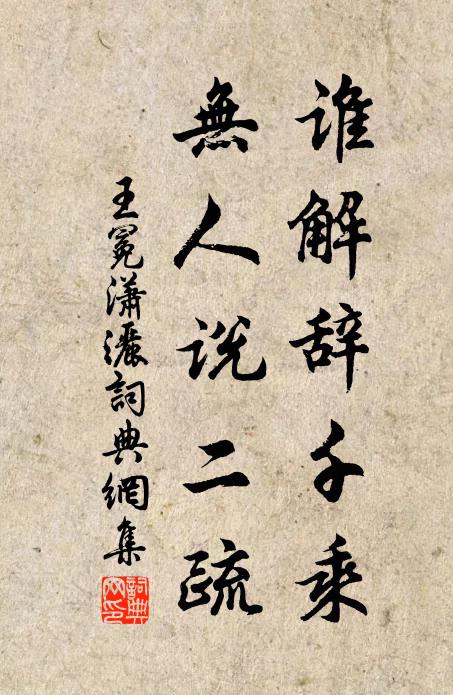 谁解辞千乘
無人说二疏
王冕瀟灑詞典網集
詞典網印